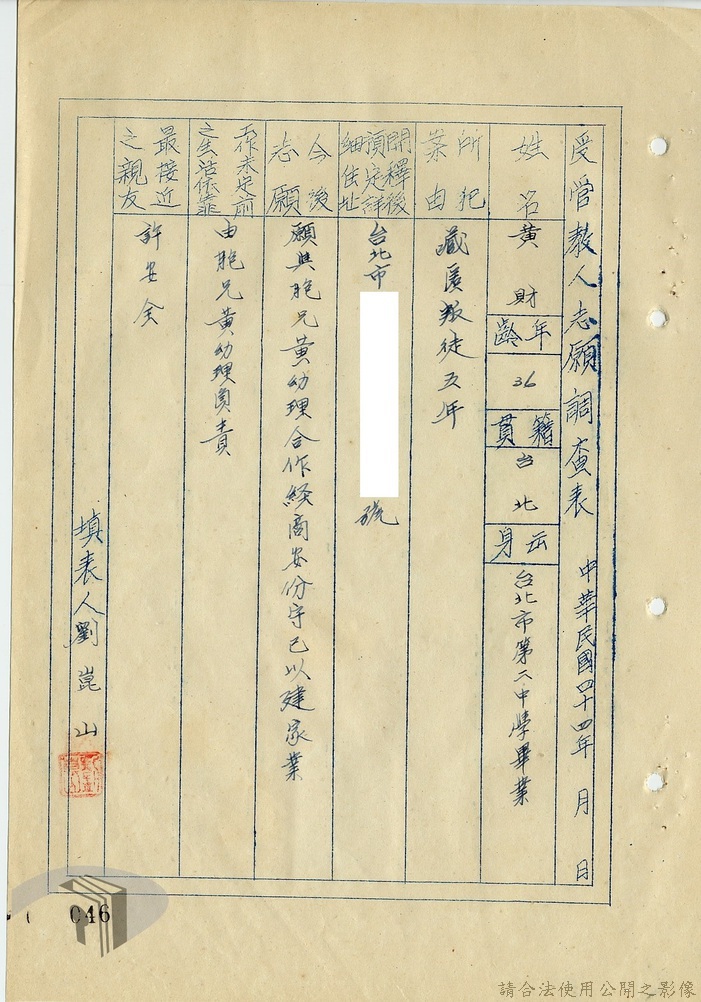 受管教人志願調查表 中華民國四十四年 月 日
姓名 黄財 年齡 36 籍貫 台北 出身 台北市第二中學畢業
所犯案由 藏匿叛徒五年
開釋後預定詳細住址 台北市 號
今後志願 願與胞兄黄幼理合作経商安份守己以建家業
工作未定前之生活依靠 由胞兄黄幼理負責
最接近之親友 許安全
填表人 劉崑山
046
請合法使用公開之影像